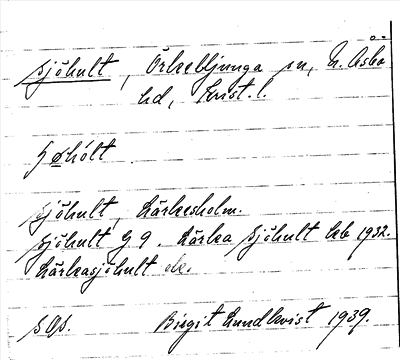 Sjöhult, Örkelljunga sn, N. Åsbo
hd, Krist. l.
Sjöhult, Lärkesholm.
Sjöhult G 9. Lärka Sjöhult kb 1932.
Lärkasjöhult do.
SOS. Birgit Lundkvist 1939.